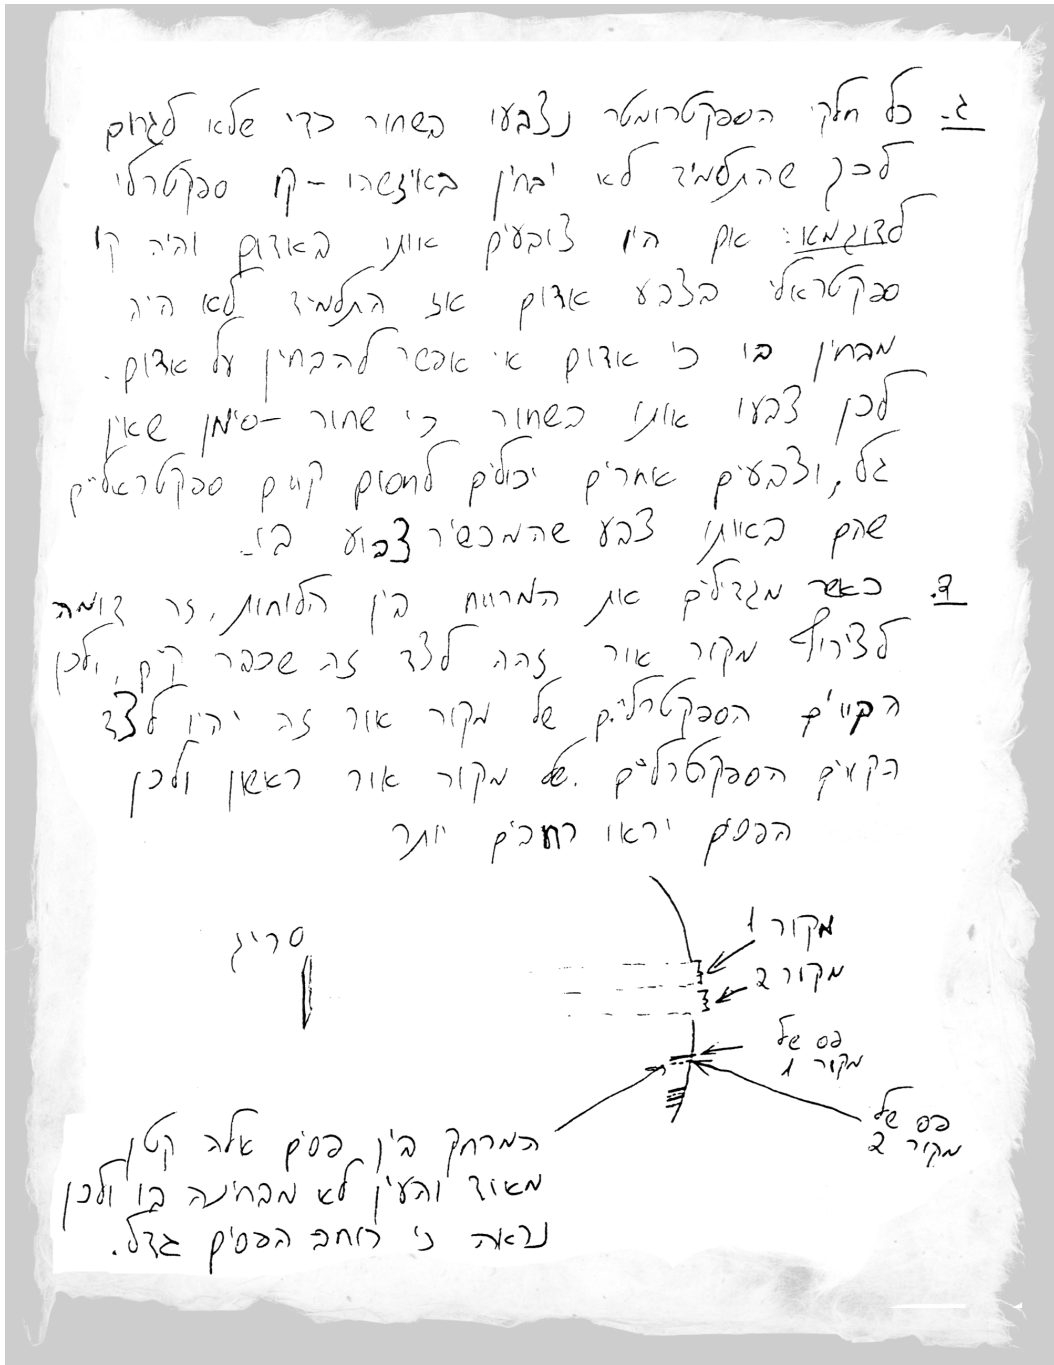 ג. כל חלקי הספקטרומטר נצבעו בשחור כדי שלא לגרום
לכך שהתלמיד לא יבחין באיזשהו-קו ספקטרלי
לדוגמא: אם היו צובעים אותו באדום והיה קו
ספקטראלי בצבע אדום אז התלמיד לא היה
מבחין בו כי אדום אי אפשר להבחין על אדום.
לכן צבעו אותו בשחור כי שחור-סימן שאין
גל, וצבעים אחרים יכולים לחסום קווים ספקטראליים
שהם באותו צבע שהמכשיר צבוע בו.
ד. כאשר מגדילים את המרווח בין הלוחות, זה דומה
לצירוף מקור אור זהה לצד זה שכבר קיים, ולכן
הקווים הספקטרליים של מקור אור זה יהיו לצד
הקווים הספקטרליים של מקור אור ראשון ולכן
הפסים יראו רחבים יותר
מקור 1
סריג
מקור 2
פס של
מקור 1
פס של
מקור 2
המרחק בין פסים אלה קטן
מאוד והעין לא מבחינה בו ולכן
נראה כי רוחב הפסים גדל.